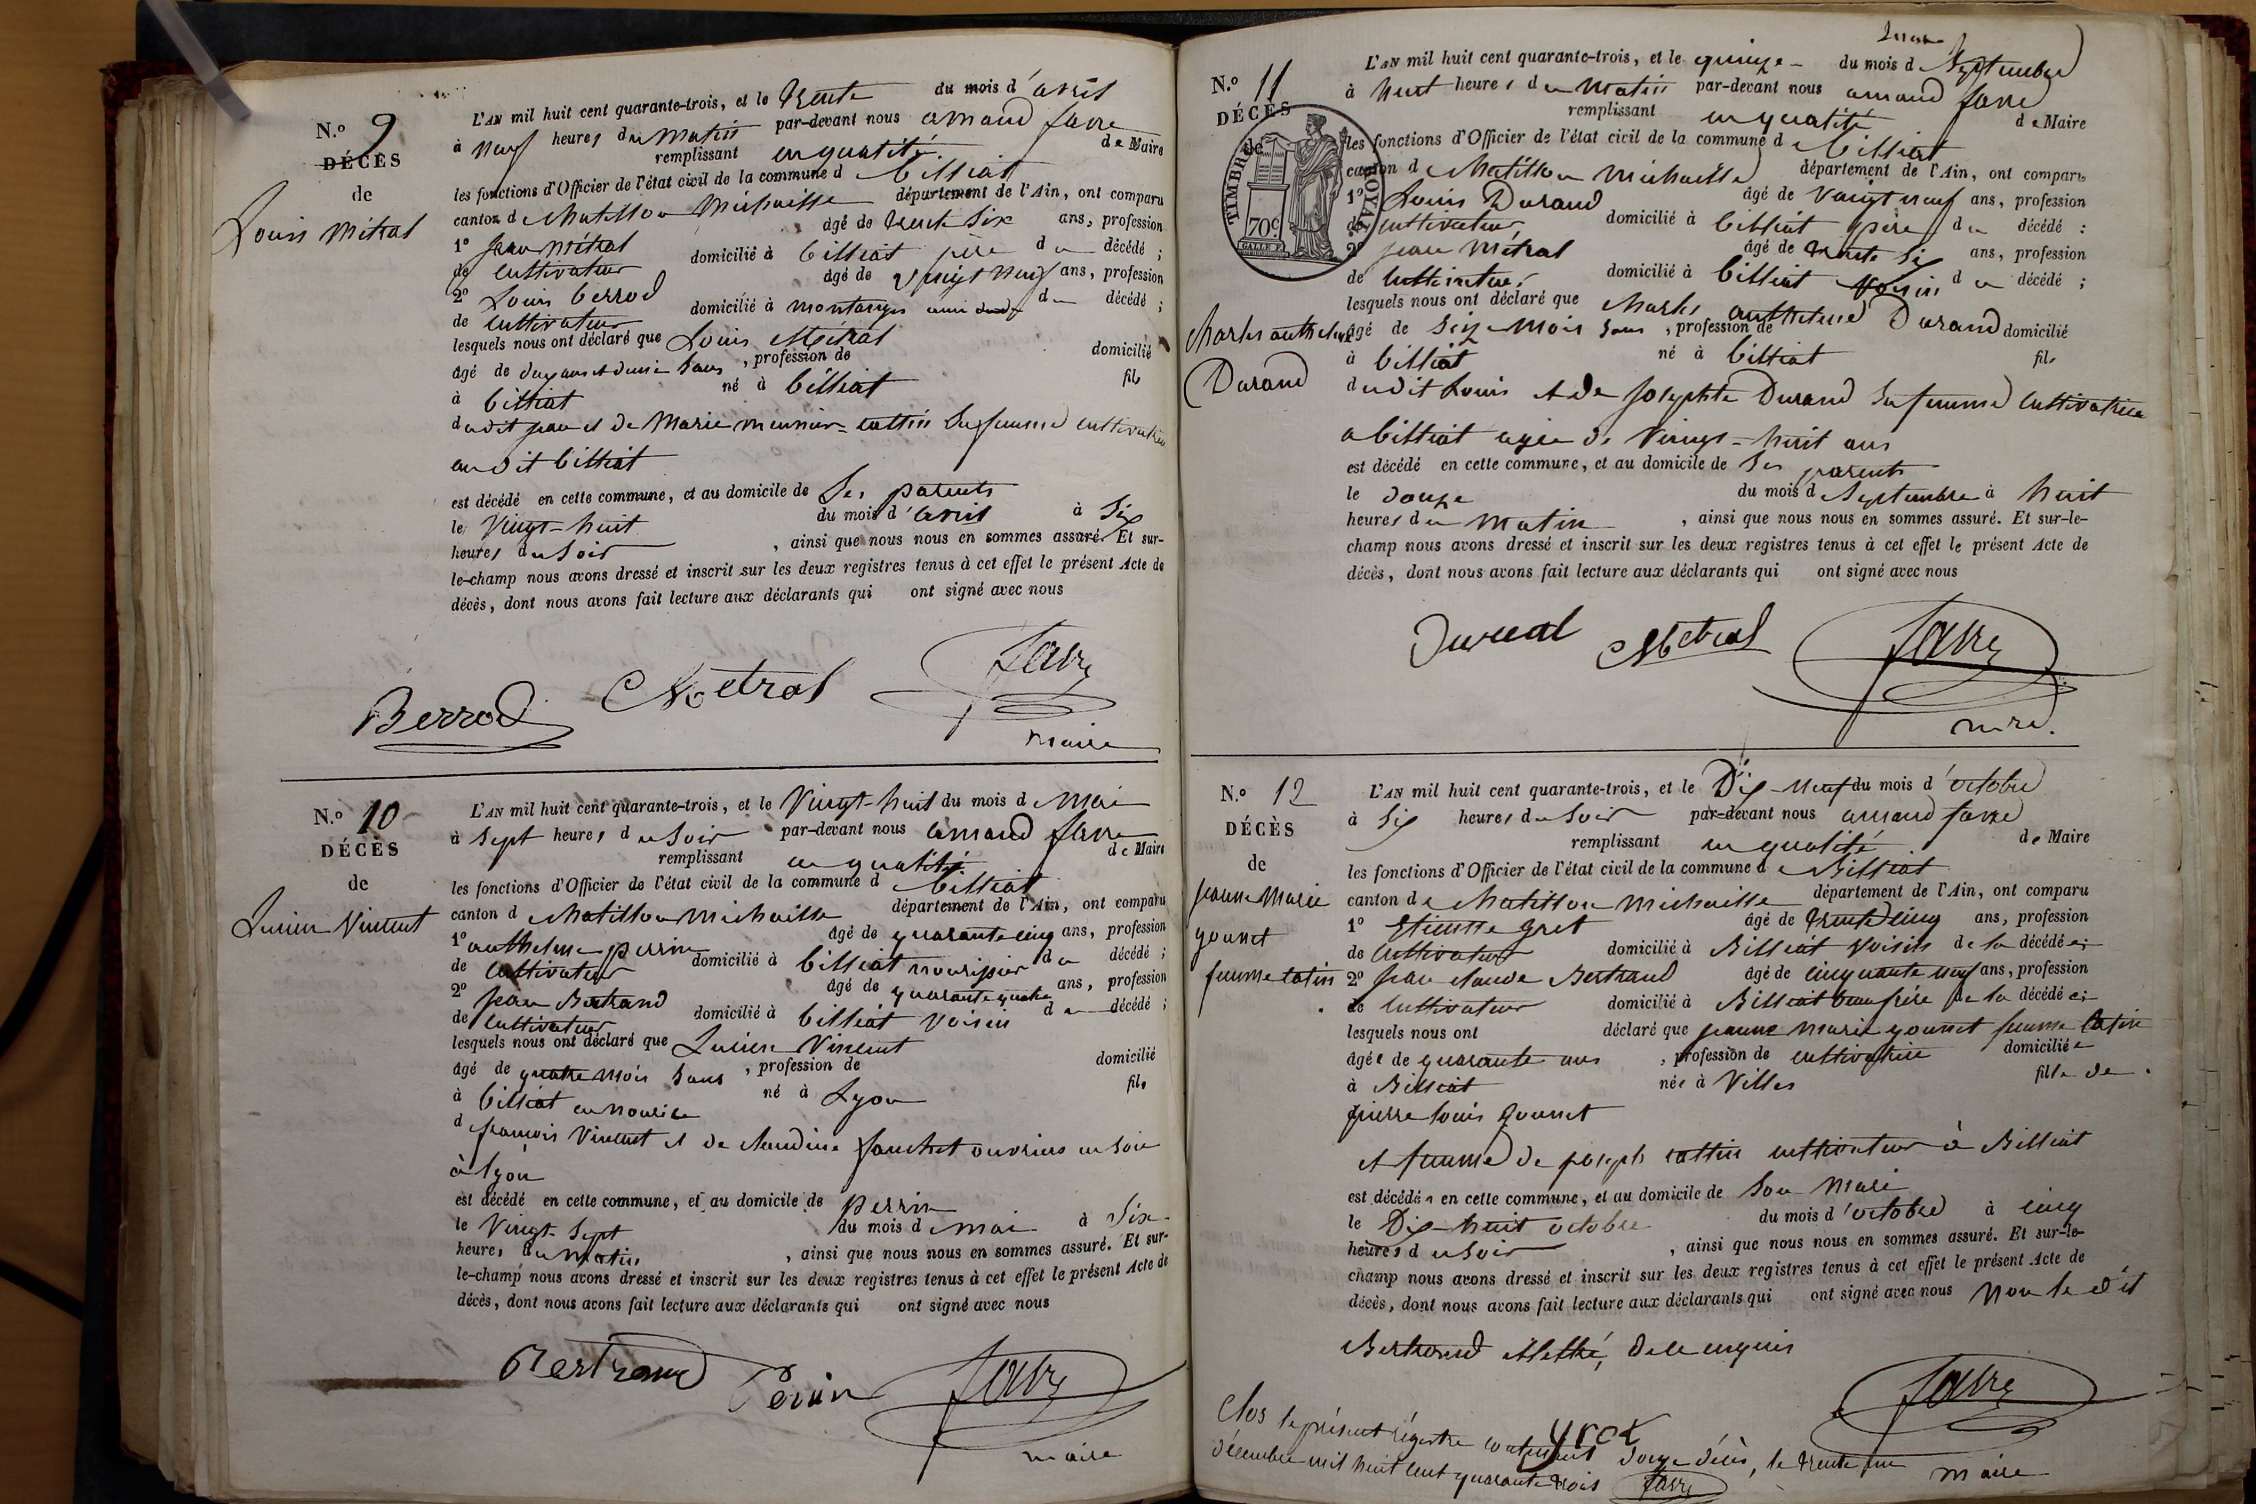 N.o 9
DÉCÈS
de
Louis Métral
L'AN mil huit cent quarante-trois, et le trente du mois d'avril
à neuf heures du matin par-devant nous armand favre
remplissant en qualité de Maire
les fonctions d'Officier de l'état civil de la commune d billiat
canton d chatillon michaille département de l'Ain, ont comparu
1o jean métral âgé de trente six ans, profession
de cultivateur domicilié à billiat père du décédé ;
2o Louis berrod âgé de vingt neuf ans, profession
de cultivateur domicilié à montanges ami du décédé ;
lesquels nous ont déclaré que Louis Métral
âgé de deux ans et demie sans , profession de domicilié
à billiat né à billiat fils
dudit jean et de Marie meunier = cattin sa femme cultivatrice
au dit billiat
est décédé en cette commune, et au domicile de ses parents
le vingt-huit du mois d'avril à six
heures du soir , ainsi que nous nous en sommes assuré. Et sur-
le-champ nous avons dressé et inscrit sur les deux registres tenus à cet effet le présent Acte de
décès, dont nous avons fait lecture aux déclarants qui ont signé avec nous
Berrod Metral favre
maire
N.o 10
DÉCÈS
de
Lucien Vincent
L'AN mil huit cent quarante-trois, et le vingt-huit du mois d mai
à sept heures du soir par-devant nous armand favre
remplissant en qualité de Maire
les fonctions d'Officier de l'état civil de la commune d billiat
canton d chatillon michaille département de l'Ain, ont comparu
1o anthelme perrin âgé de quarante cinq ans, profession
de cultivateur domicilié à billiat nourissier du décédé ;
2o jean Bertrand âgé de quarante quatre ans, profession
de cultivateur domicilié à billiat voisin du décédé ;
lesquels nous ont déclaré que Lucien Vincent
âgé de quatre mois sans , profession de domicilié
à billiat en nourice né à Lyon fils
de françois Vincent et de claudine fouchet ouvriers en soie
à lyon
est décédé en cette commune, et au domicile de perrin
le vingt-sept du mois d mai à six
heures du matin , ainsi que nous nous en sommes assuré. Et sur-
le-champ nous avons dressé et inscrit sur les deux registres tenus à cet effet le présent Acte de
décès, dont nous avons fait lecture aux déclarants qui ont signé avec nous
Bertrand Perin favre
maire
N.o 11
DÉCÈS
de
TIMBRE ROYAL
70c
charles anthelme
Durand
L'AN mil huit cent quarante-trois, et le quinze du mois d septembre
à huit heures du matin par-devant nous armand favre
remplissant en qualité de Maire
les fonctions d'Officier de l'état civil de la commune d billiat
canton d chatillon michaille département de l'Ain, ont comparu
1o Louis Durand âgé de vaingt neuf ans, profession
de cultivateur domicilié à billiat père du décédé :
2o jean métral âgé de trente six ans, profession
de cultivateur domicilié à billiat voisin du décédé ;
lesquels nous ont déclaré que charles anthelme Durand
âgé de six mois sans , profession de domicilié
à billiat né à billiat fils
dudit Louis et de josephte Durand sa femme cultivatrice
a billiat agée de vingt-huit ans
est décédé en cette commune, et au domicile de ses parents
le douze du mois d septembre à huit
heures du matin , ainsi que nous nous en sommes assuré. Et sur-le-
champ nous avons dressé et inscrit sur les deux registres tenus à cet effet le présent Acte de
décès, dont nous avons fait lecture aux déclarants qui ont signé avec nous
Metral favre
N.o 12
DÉCÈS
de
jeanne Marie
gounet
femme catin
L'AN mil huit cent quarante-trois, et le Dix-neuf du mois d'octobre
à six heures du soir par-devant nous armand favre
remplissant en qualité de Maire
les fonctions d'Officier de l'état civil de la commune de Billiat
canton de chatillon michaille département de l'Ain, ont comparu
1o gret âgé de trente cinq ans, profession
de cultivateur domicilié à Billiat voisin de la décédée
2o jean claude Bertrand âgé de cinquante neuf ans, profession
de cultivateur domicilié à Billiat beau frère de la décédée
lesquels nous ont déclaré que jeanne marie gounet femme catin
âgée de quarante ans , profession de cultivatrice domiciliée
à Billiat née à Villes fille de
pierre louis gounet
et femme de joseph cattin cultivateur à Billiat
est décédée en cette commune, et au domicile de son mari
le Dix-huit octobre du mois d'octobre à cinq
heures du soir , ainsi que nous nous en sommes assuré. Et sur-le-
champ nous avons dressé et inscrit sur les deux registres tenus à cet effet le présent Acte de
décès, dont nous avons fait lecture aux déclarants qui ont signé avec nous non le dit
Bertrand illettré, de ce enquis
favre
maire
Clos le présent régistre contenant douze décès, le trente un
décembre mil huit cent quarante trois favre